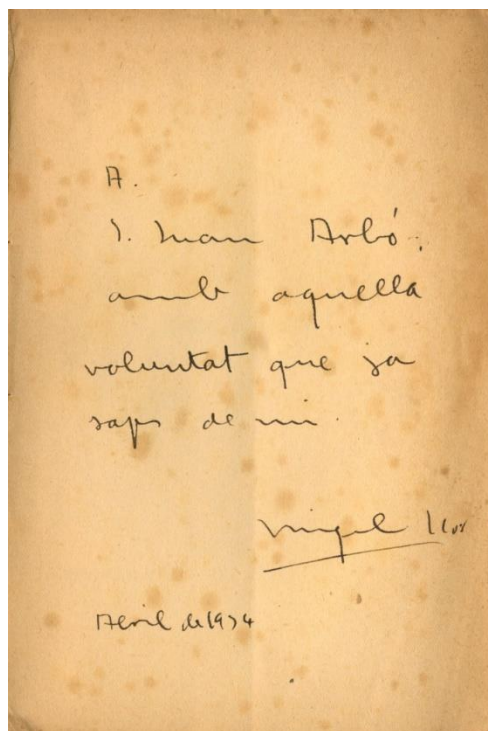 A.
S. Juan Arbó,
amb aquella
voluntat que ja
saps de mi.
Miquel Llor
Abril de 1934